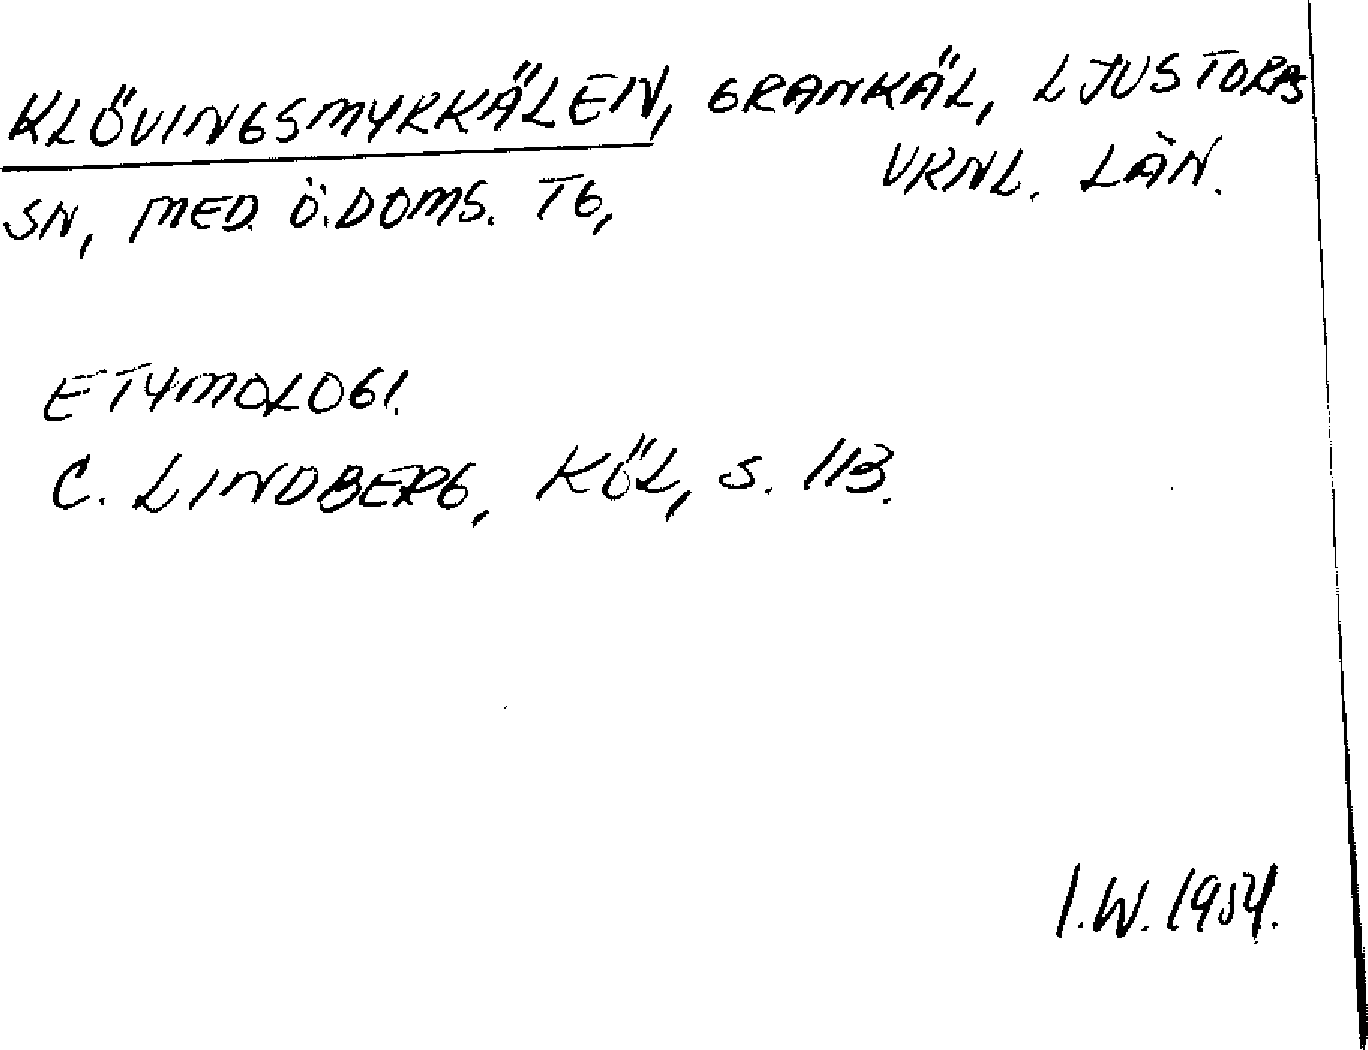 KLÖVINGSMYRKÄLEN, GRANKÄL, LJUSTORPS
SN, MED. Ö. DOMS. TG, VRNL. LÄN.
ETYMOLOGI.
C. LINDBERG, KÖL, S. 113.
I.W. 1954.